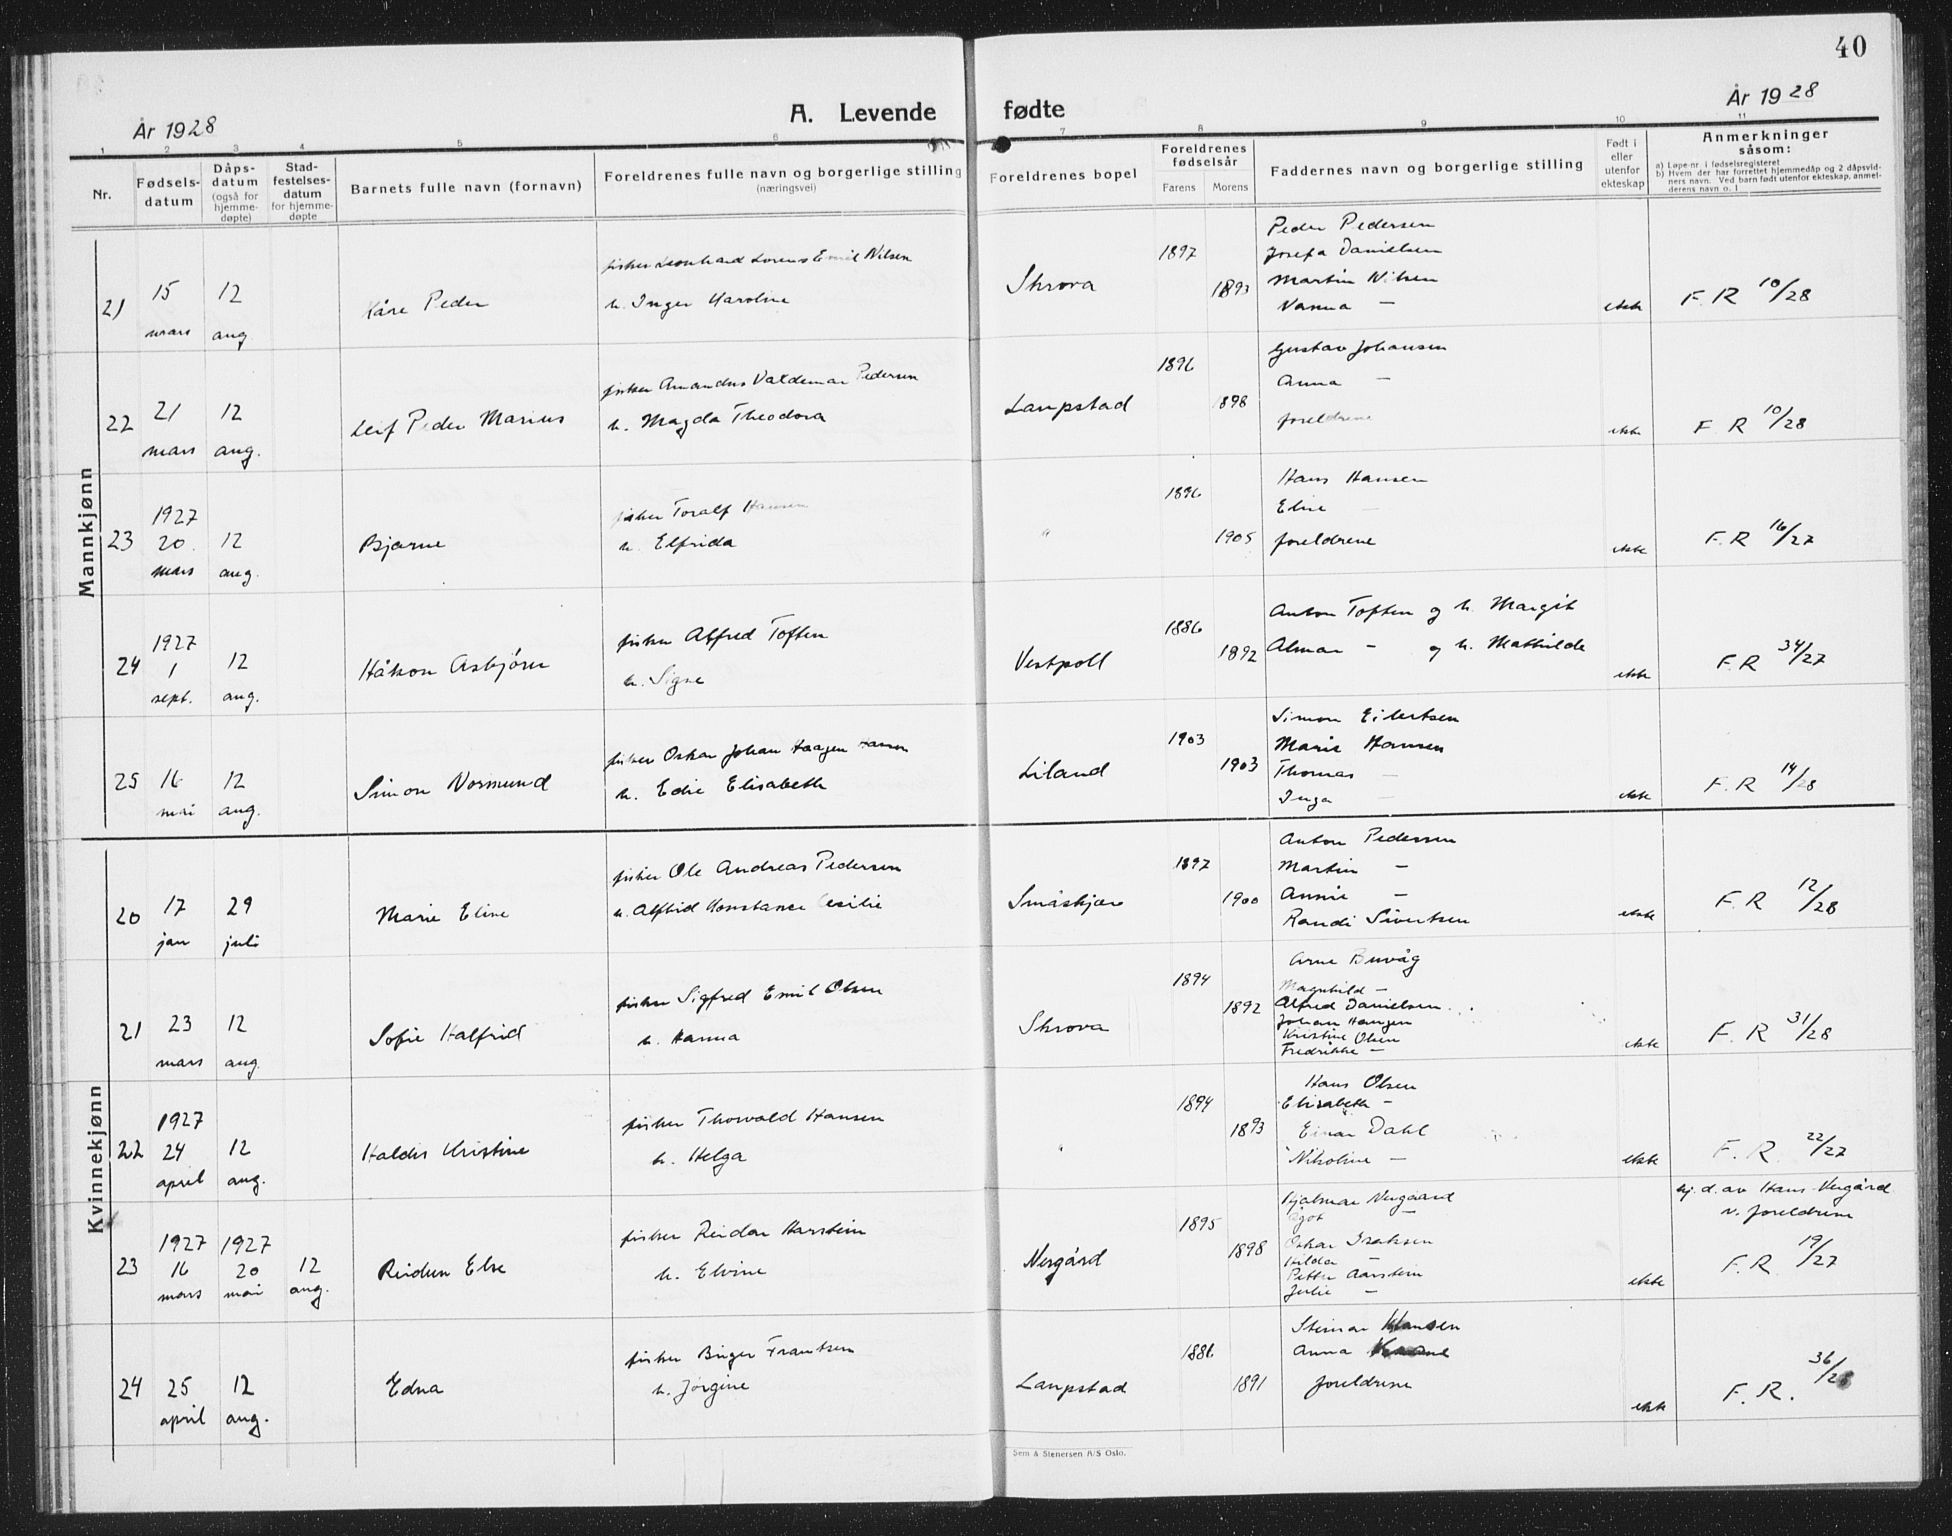 40
År 1928
A. Levende fødte
År 1928
1 2 3 4 5 6 7 8 9 10 11
Nr.
Fødselsdatum
Dåpsdatum (også for hjemmedøpte)
Stadfestelsesdatum for hjemmedøpte
Barnets fulle navn (fornavn)
Foreldrenes fulle navn og borgerlige stilling (næringsvei)
Foreldrenes bopel
Foreldrenes fødselsår
Farens Morens
Faddernes navn og borgerlige stilling
Født i eller utenfor ekteskap
Anmerkninger såsom:
a) Løpe-nr. i fødselsregisteret
b) Hvem der har forrettet hjemmedåp og 2 dåpsvidners navn. Ved barn født utenfor ekteskap, anmelderens navn o. l
Mannkjønn
21
15 mars
12 aug.
Kåre Peder
fisker Leonhard Lorens Emil Nilsen
h. Inger Karoline
Skrova
1897
1893
Peder Pedersen
Josefa Danielsen
Martin Nilsen
Nanna —
ekte
F. R 10/28
22
21 mars
12 aug.
Leif Peder Marius
fisker Amandus Valdemar Pedersen
h. Magda Theodora
Laupstad
1896
1898
Gustav Johansen
Anna —
foreldrene
ekte
F. R 10/28
23
1927
20 mars
12 aug.
Bjarne
fisker Toralf Hansen
h. Elfrida
"
1896
1905
Hans Hansen
Eline —
foreldrene
ekte
F. R 16/27
24
1927
1 sept.
12 aug.
Håkon Asbjørn
fisker Alfred Toften
h. Signe
Vestpoll
1886
1892
Anton Toften og h. Margit
Almar — og h. Mathilde
ekte
F. R 34/27
25
16 mai
12 aug.
Simon Normund
fisker Oskar Johan Haagen Hansen
h. Edie Elisabeth
Liland
1903
1903
Simon Eilertsen
Marie Hansen
Thomas —
Inga —
ekte
F. R 14/28
Kvinnekjønn
20
17 jan
29 juli
Marie Eline
fisker Ole Andreas Pedersen
h. Alfhild Konstanse Cesilie
Småskjær
1897
1900
Anton Pedersen
Martin —
Annie —
Randi Sivertsen
ekte
F. R 12/28
21
23 mars
12 aug.
Sofie Halfrid
fisker Sigfred Emil Olsen
h. Hanna
Skrova
1894
1892
Arne Buvåg
Magnhild —
Alfred Danielsen
Johan Hangen
Kristine Olsen
Fredrikke —
ekte
F. R 31/28
22
1927
24 april
12 aug.
Haldis Kristine
fisker Thorvald Hansen
h. Helga
"
1894
1893
Hans Olsen
Elisabeth —
Einar Dahl
Nikoline —
ekte
F. R. 22/27
23
1927
16 mars
1927
20 mai
12 aug.
Reidun Else
fisker Reidar Harstein
h. Elvine
Nergård
1895
1898
Hjalmar Nergaard
Ågot —
Oskar Isaksen
Hilda —
Petter Aarstein
Julie —
ekte
hj. d. av Hans Nergård
v. foreldrene
F. R. 19/27
24
25 april
12 aug.
Edna
fisker Birger Frantsen
h. Jørgine
Laupstad
1886
1891
Steinar Hansen
Anna
foreldrene
ekte
F. R. 36/28
Sem & Stenersen A/S Oslo.